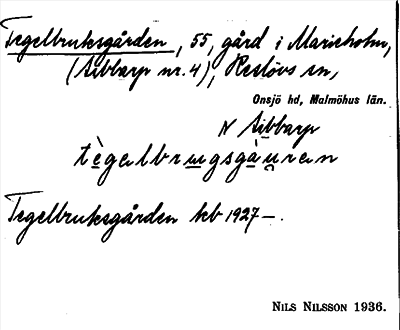 Tegelbruksgården, 55, gård i Marieholm,
(Aibbarp nr. 4), Reslövs sn,
Onsjö hd, Malmöhus län.
N Aibbarp
tègalbrɯgsgàu̯ran
Tegelbruksgården kb 1927—.
NILS NILSSON 1936.